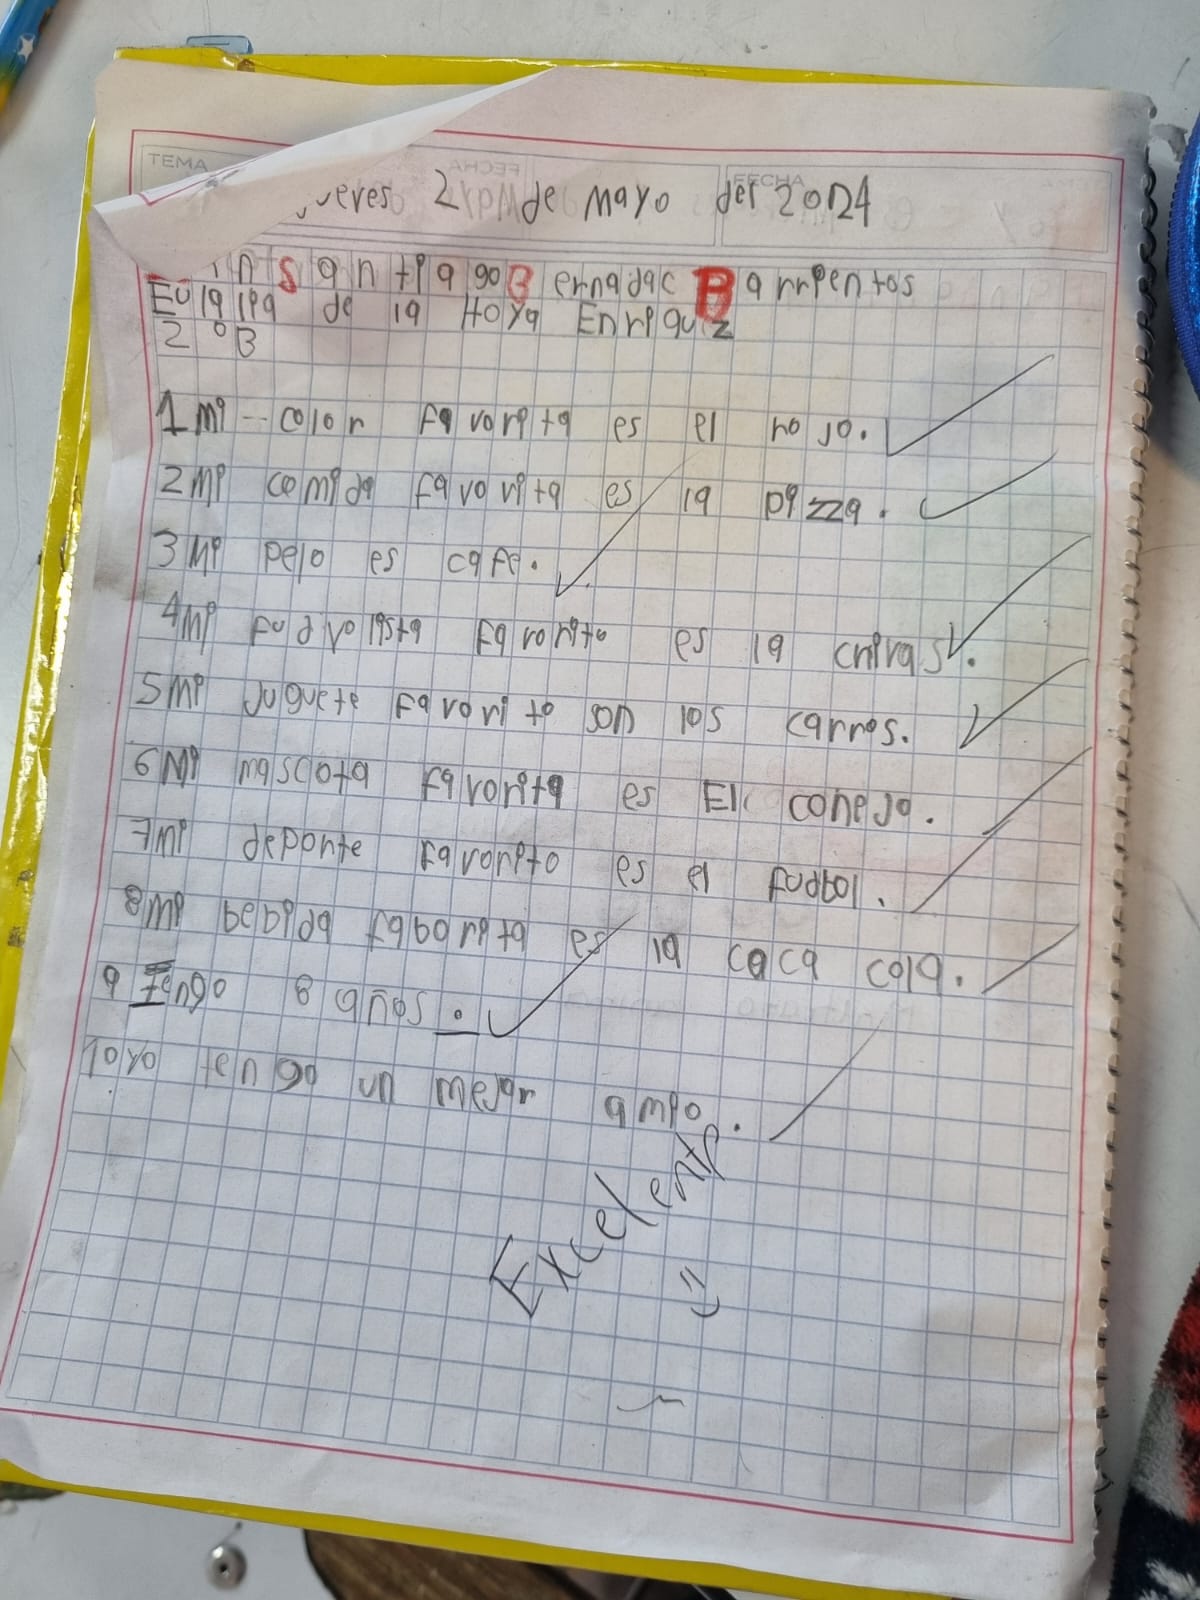 TEMA FECHA
ueves 2 de mayo del 20024
Santiago Bernadac Barrientos
Eulalia de la Hoya Enriquez
2°B
1 mi color favorita es el rojo.
2 Mi comida favorita es la pizza.
3 Mi pelo es cafe.
4 Mi fudvolista favorito es la chivas.
5 Mi juguete favorito son los carros.
6 Mi mascota favorita es El conejo.
7 Mi deporte favorito es el fudbol.
8 Mi bebida faborita es la coca cola.
9 Tengo 8 años.
10 yo tengo un mejor amio.
Excelente